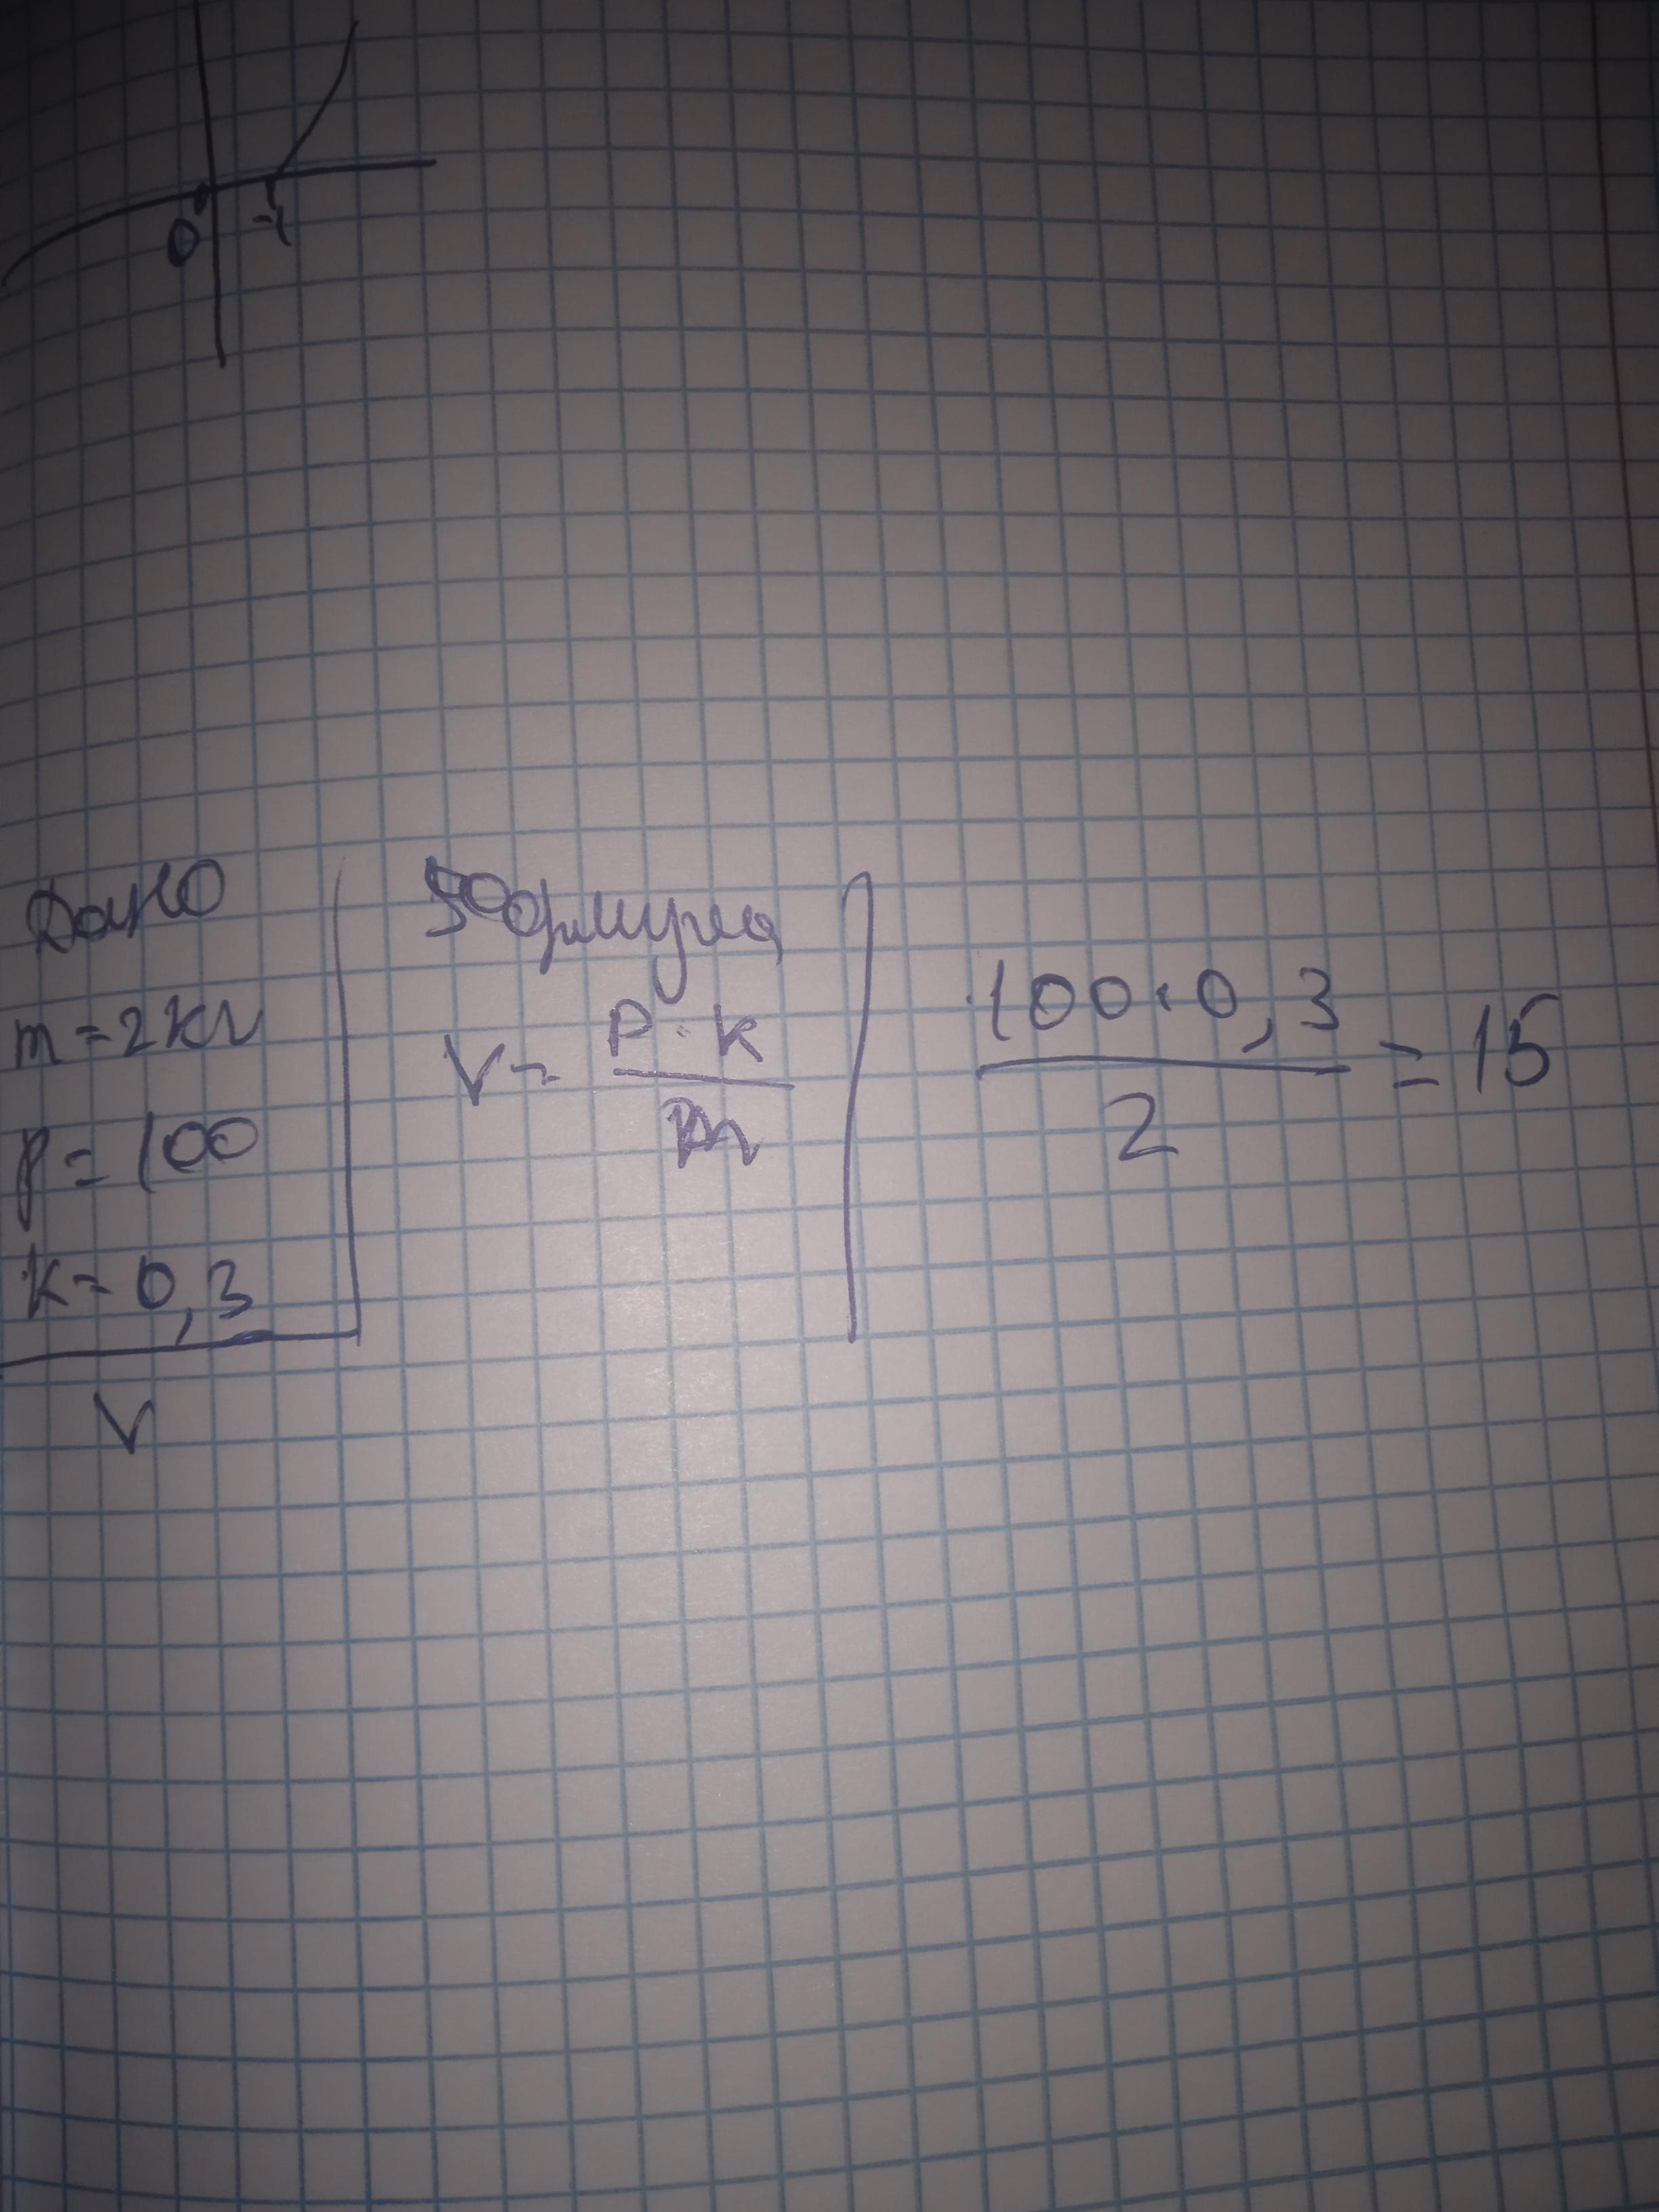 0 -1
Дано
m = 2 кг
p = 100
k = 0,3
V
Формула
V = P · k / m
100 · 0,3 / 2 = 15